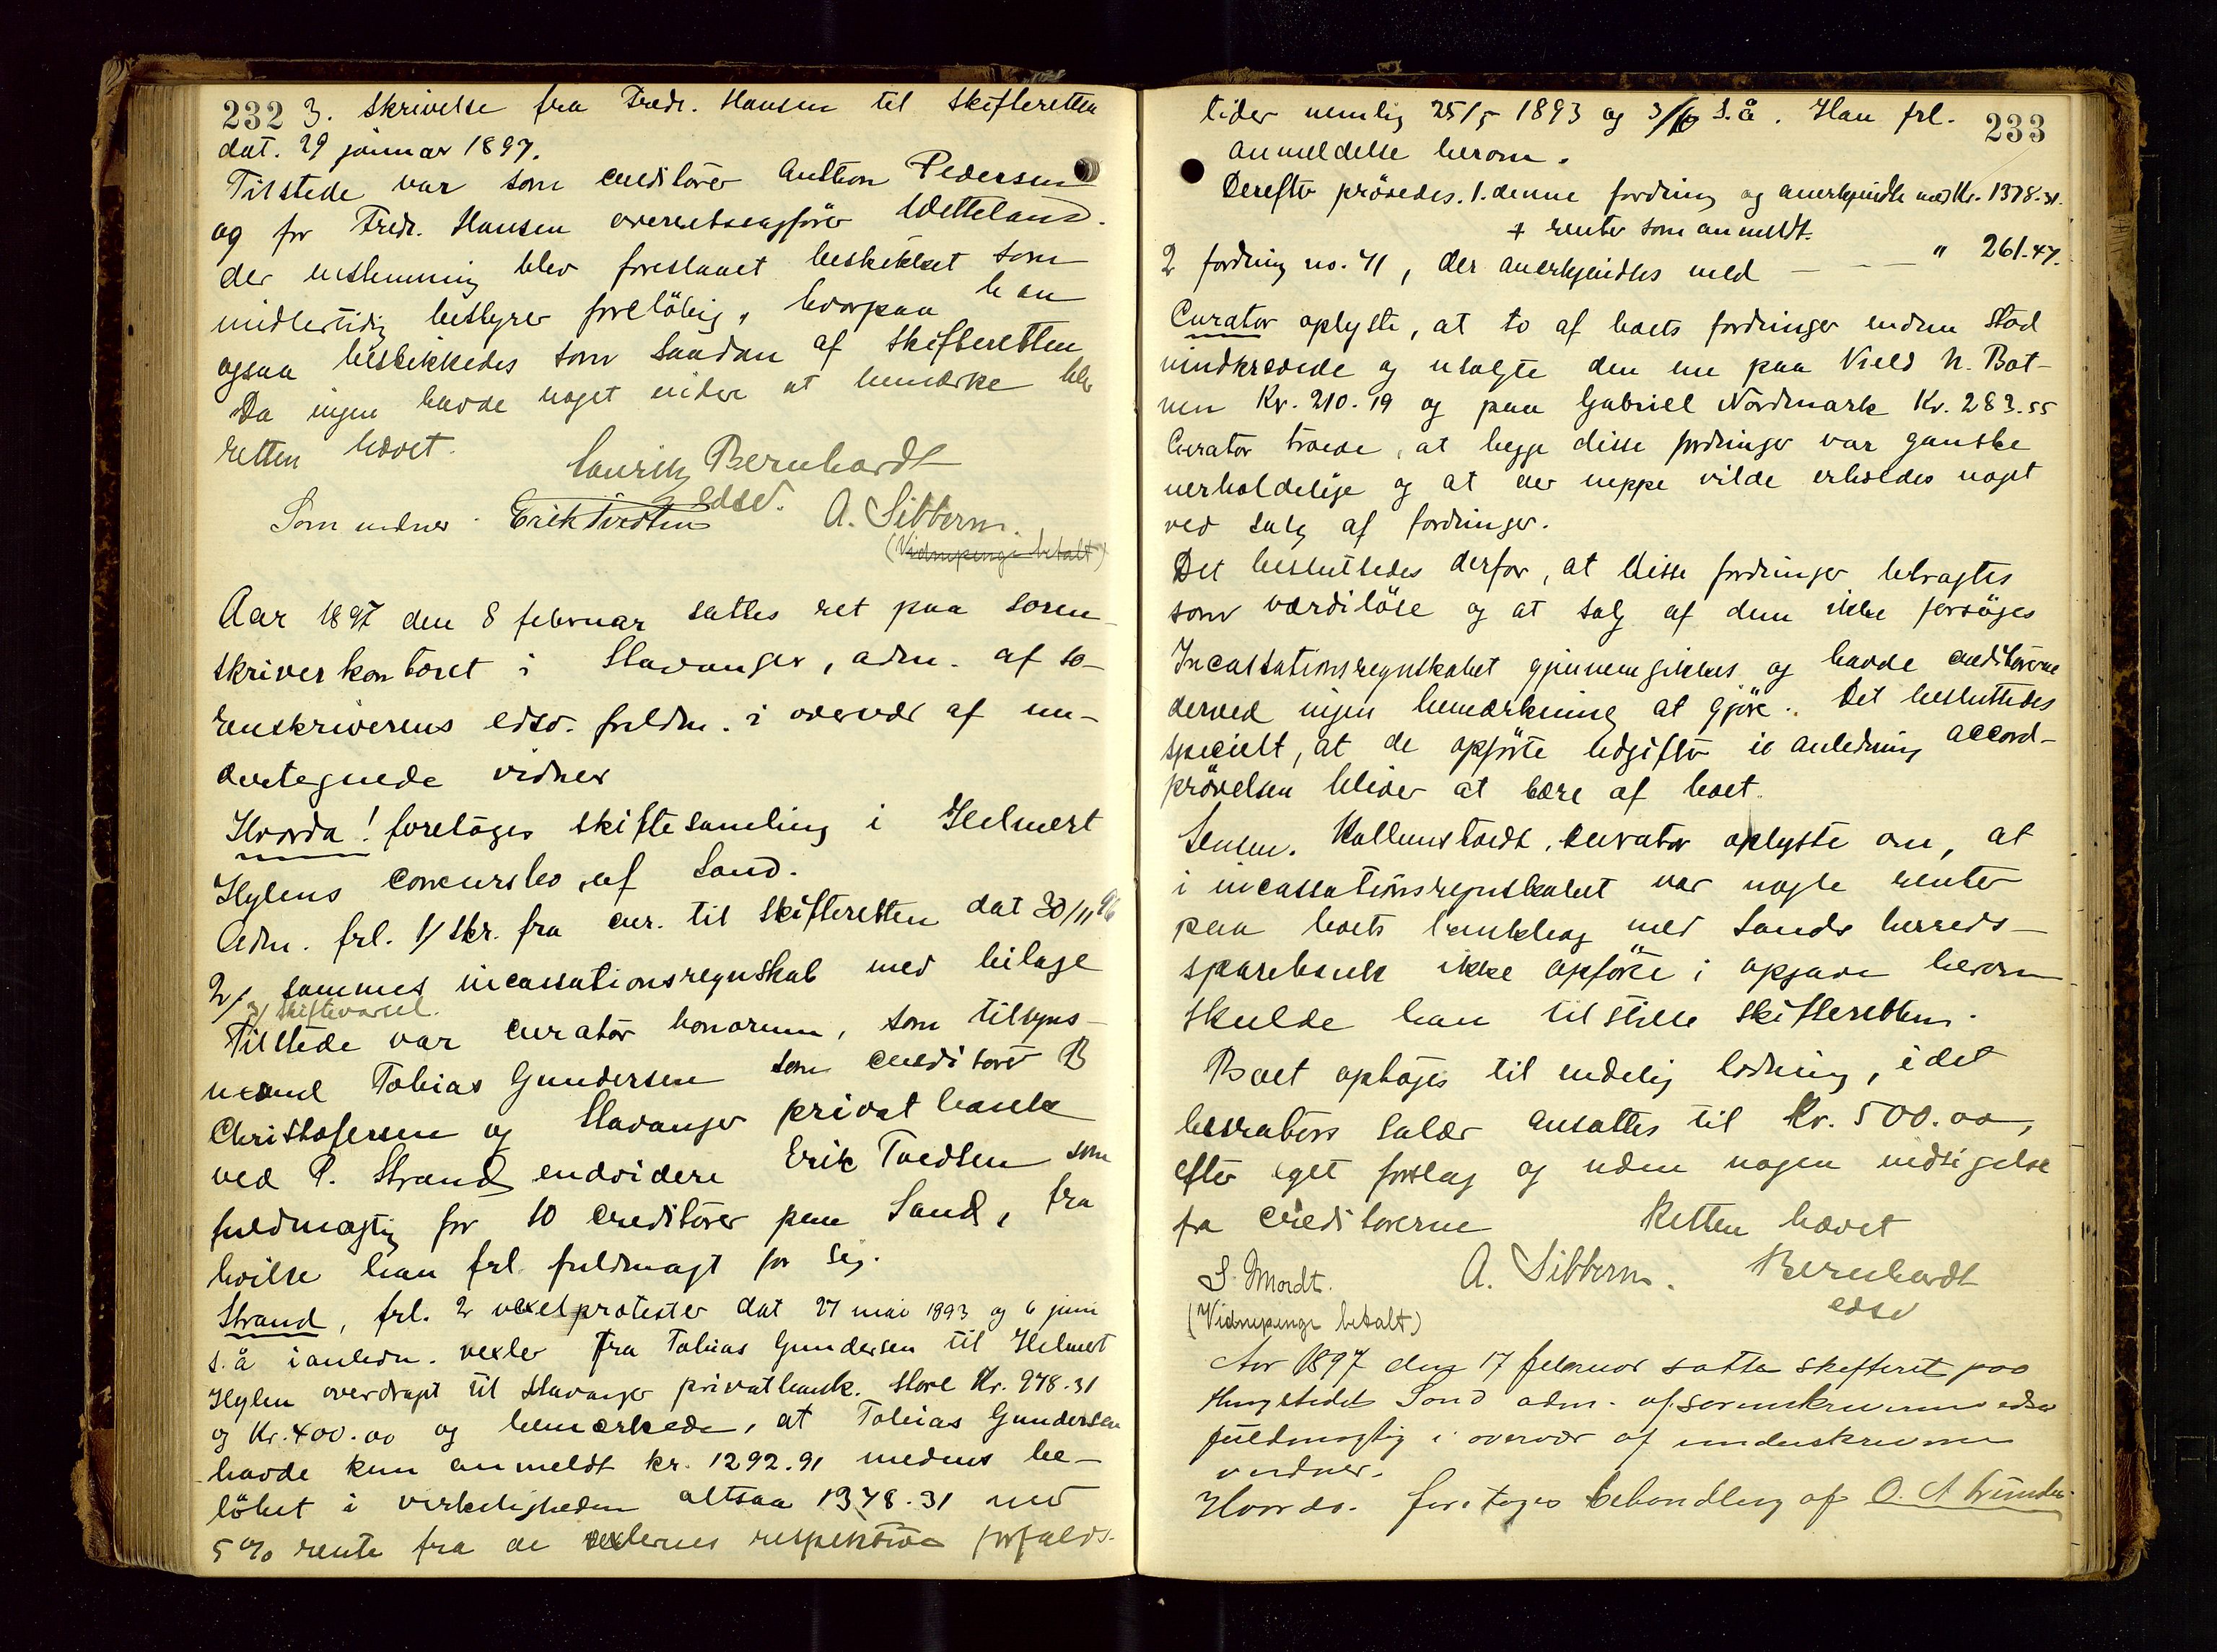 232 3. Skrivelse fra Fredr. Hansen til skifteretten
dat. 29 januar 1897.
Tilstede var som creditorer Anthon Pedersen
og for Fredr. Hansen overretssagfører Wetteland.
der enstemmig blev foreslaaet beskikket som
midlertidig bestyrer foreløbig, hvorpaa han
ogsaa beskikkedes som saadan af skifteretten
Da ingen havde noget videre at bemærke blev
retten hævet.
Lauritz Bernhardt
edsv.
Som vidner Erik Tvedten A. Sibbern.
(Vidnepenge betalt)
Aar 1897 den 8 februar sattes ret paa soren-
skriverkontoret i Stavanger, adm. af so-
renskriverens edsv. fuldm. i overvær af un-
dertegnede vidner
Hvorda! foretoges skiftesamling i Helmert
Hylens concursbo af Sand.
Adm. frl. 1/ skr. fra cur. til skifteretten dat 30/11 96
2/ sammes incassationsregnskab med bilage
3/ skiftevarsel.
Tilstede var curator bonorum, som tilsyns-
mand Tobias Gundersen som creditorer B
Christofersen og Stavanger privatbank
ved P. Strand endvidere Erik Tvedten som
fuldmægtig for 10 creditorer paa Sand, fra
hvilke han frl. fuldmagt for sig.
Strand, frl. 2 vexelprotester dat 27 mai 1893 og 6 juni
s. å ianledn. vexler fra Tobias Gundersen til Helmert
Hylen overdraget til Stavanger privatbank. Store Kr. 978.31
og Kr. 400.00 og bemærkede, at Tobias Gundersen
havde kun anmeldt kr. 1292.91 medens be-
løbet i virkeligheden altsaa 1378.31 med
5% rente fra de vexlernes respektive forfalds-
tider nemlig 25/5 1893 og 3/6 s.å. Han frl. 233
anmeldelse herom.
Derefter prøvedes. 1. denne fordring og anerkjendte med Kr. 1378.31.
+ renter som anmeldt.
2 fordring no. 41, der anerkjendtes med — — — " 261.47.
Curator oplyste, at to af boets fordringer endnu stod
uindkrævede og usolgte den ene paa Nield N. Bot-
nen Kr. 210.19 og paa Gabriel Nordmark Kr. 283.55
Curator troede, at begge disse fordringer var ganske
uerholdelige og at der neppe vilde erholdes noget
ved salg af fordringer.
Det besluttedes derfor, at disse fordringer betragtes
som værdiløse og at salg af dem ikke forsøges
Incassationsregnskabet gjennemgikkes og havde creditorerne
derved ingen bemærkning at gjøre. Det besluttedes
specielt, at de opførte udgifter i anledning accord-
prøvelsen bliver at bære af boet.
curator oplyste om, at
i incassationsregnskabet var nogle renter
paa boets bankbog med Sands herreds-
sparebank ikke opført i opgave herom
skulde han tilstille skifteretten.
Boet optoges til endelig lodning, idet
curators salær ansattes til Kr. 500.00,
efter eget forslag og uden nogen indsigelse
fra creditorerne Retten hævet
S. Mordt. A. Sibbern. Bernhardt
(Vidnepenge betalt) edsv
Aar 1897 den 17 februar sattes skifteret paa
thingstedet Sand adm. af sorenskriverens edsv
fuldmægtig i overvær af underskrevne
vidner.
Hvorda. foretoges behandling af O. A. Gunder-